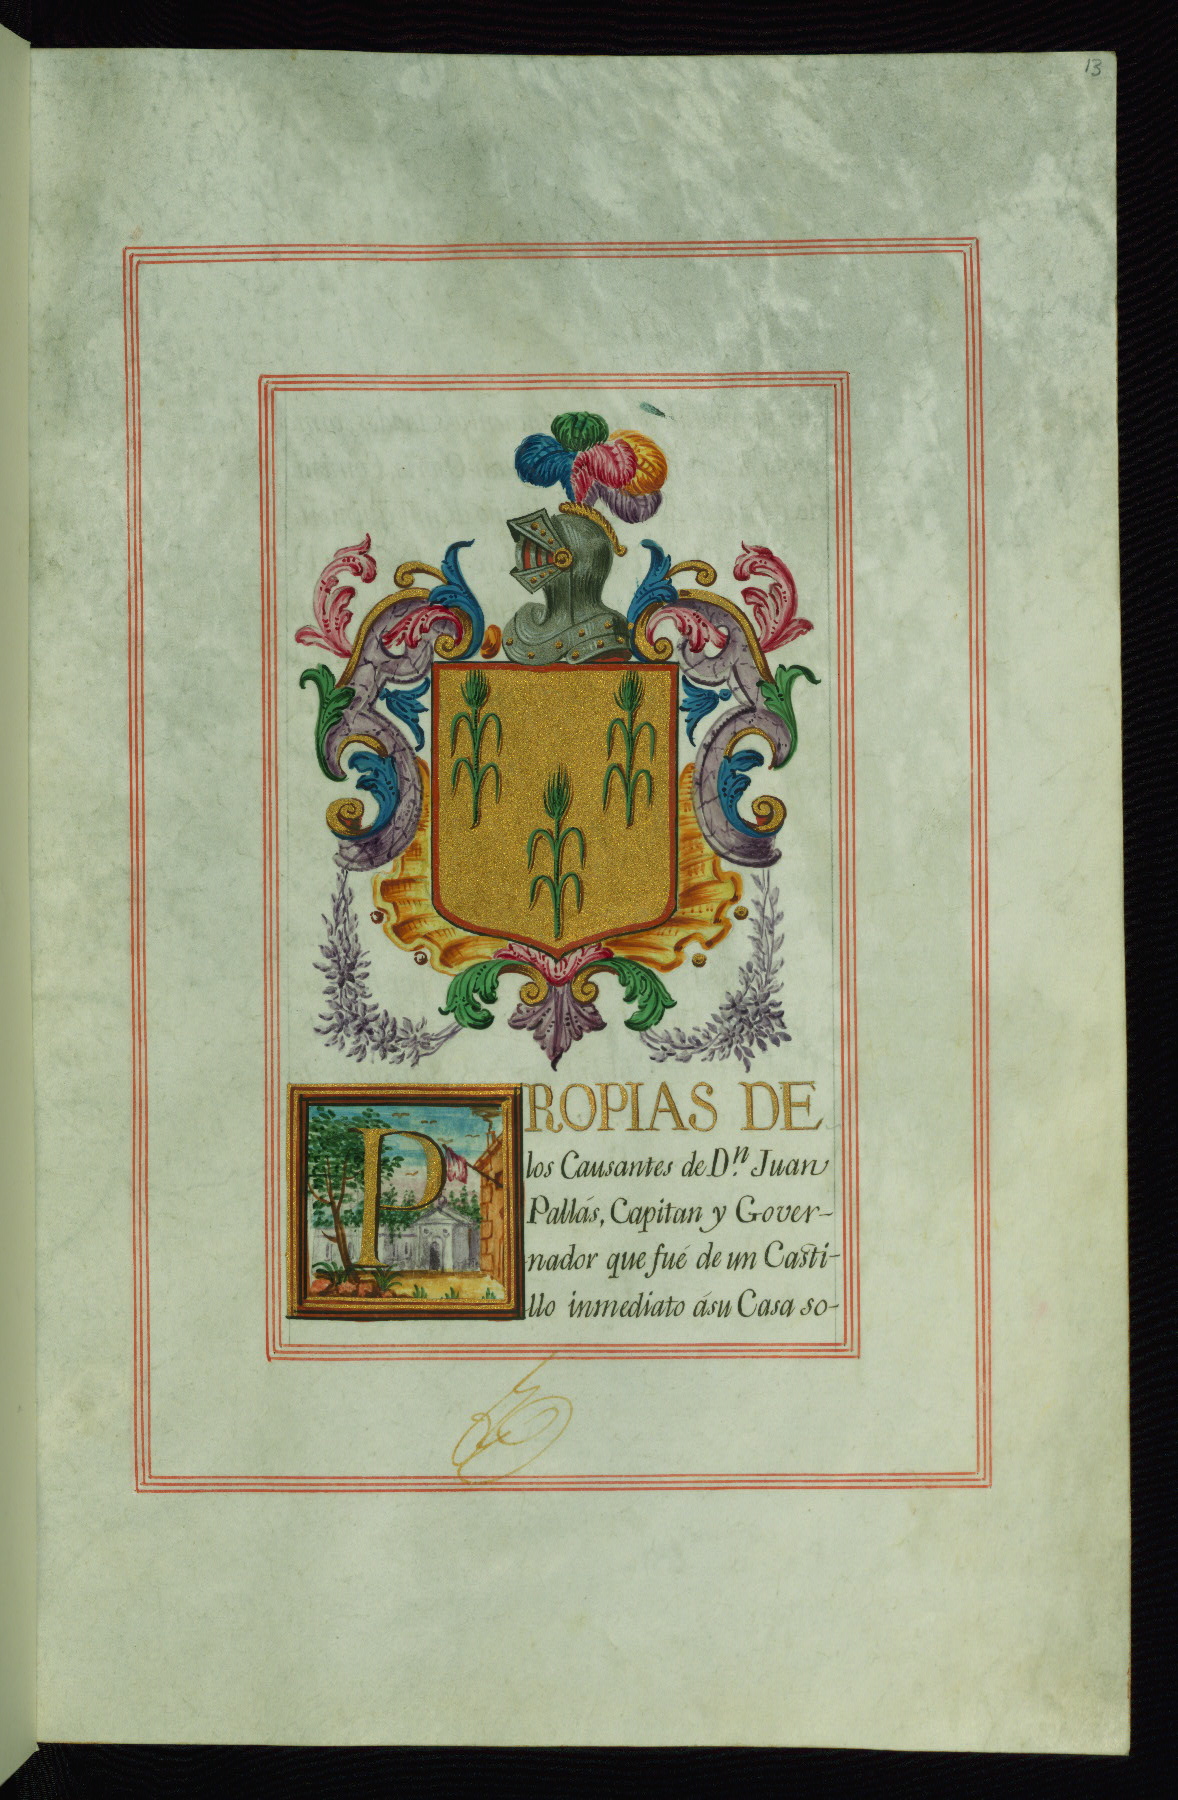 13
PROPIAS DE
los Causantes de Dn. Juan
Pallás, Capitan y Gover-
nador que fué de un Casti-
llo inmediato ásu Casa so-